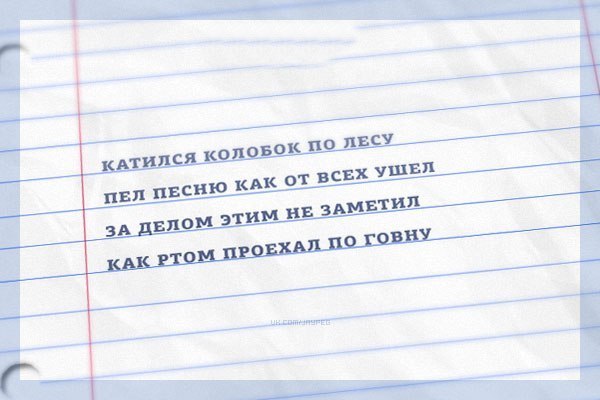 КАТИЛСЯ КОЛОБОК ПО ЛЕСУ
ПЕЛ ПЕСНЮ КАК ОТ ВСЕХ УШЕЛ
ЗА ДЕЛОМ ЭТИМ НЕ ЗАМЕТИЛ
КАК РТОМ ПРОЕХАЛ ПО ГОВНУ
VK.COM/JAYPEG